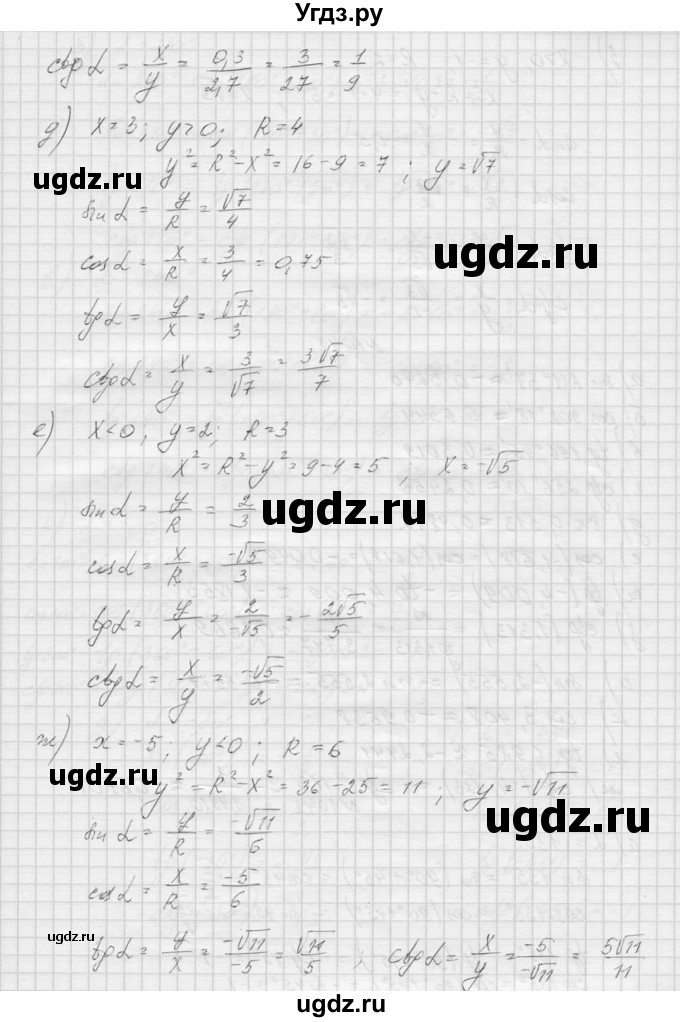 Угдз.ру
ctg α = x/y = 0,3/2,7 = 3/27 = 1/9
д) x=3; y>0; R=4
y² = R² - x² = 16 - 9 = 7 ; y = √7
ugdz.ru
sin α = y/R = √7/4
ugdz.ru
cos α = x/R = 3/4 = 0,75
tg α = y/x = √7/3
ctg α = x/y = 3/√7 = 3√7/7
е) x<0; y=2; R=3
x² = R² - y² = 9 - 4 = 5 ; x = -√5
sin α = y/R = 2/3
ugdz.ru
cos α = x/R = -√5/3
tg α = y/x = 2/-√5 = - 2√5/5
ctg α = x/y = -√5/2
ж) x = -5; y<0; R = 6
y² = R² - x² = 36 - 25 = 11 ; y = -√11
sin α = y/R = -√11/6
ugdz.ru
cos α = x/R = -5/6
ugdz.ru
tg α = y/x = -√11/-5 = √11/5 ; ctg α = x/y = -5/-√11 = 5√11/11
ugdz.ru